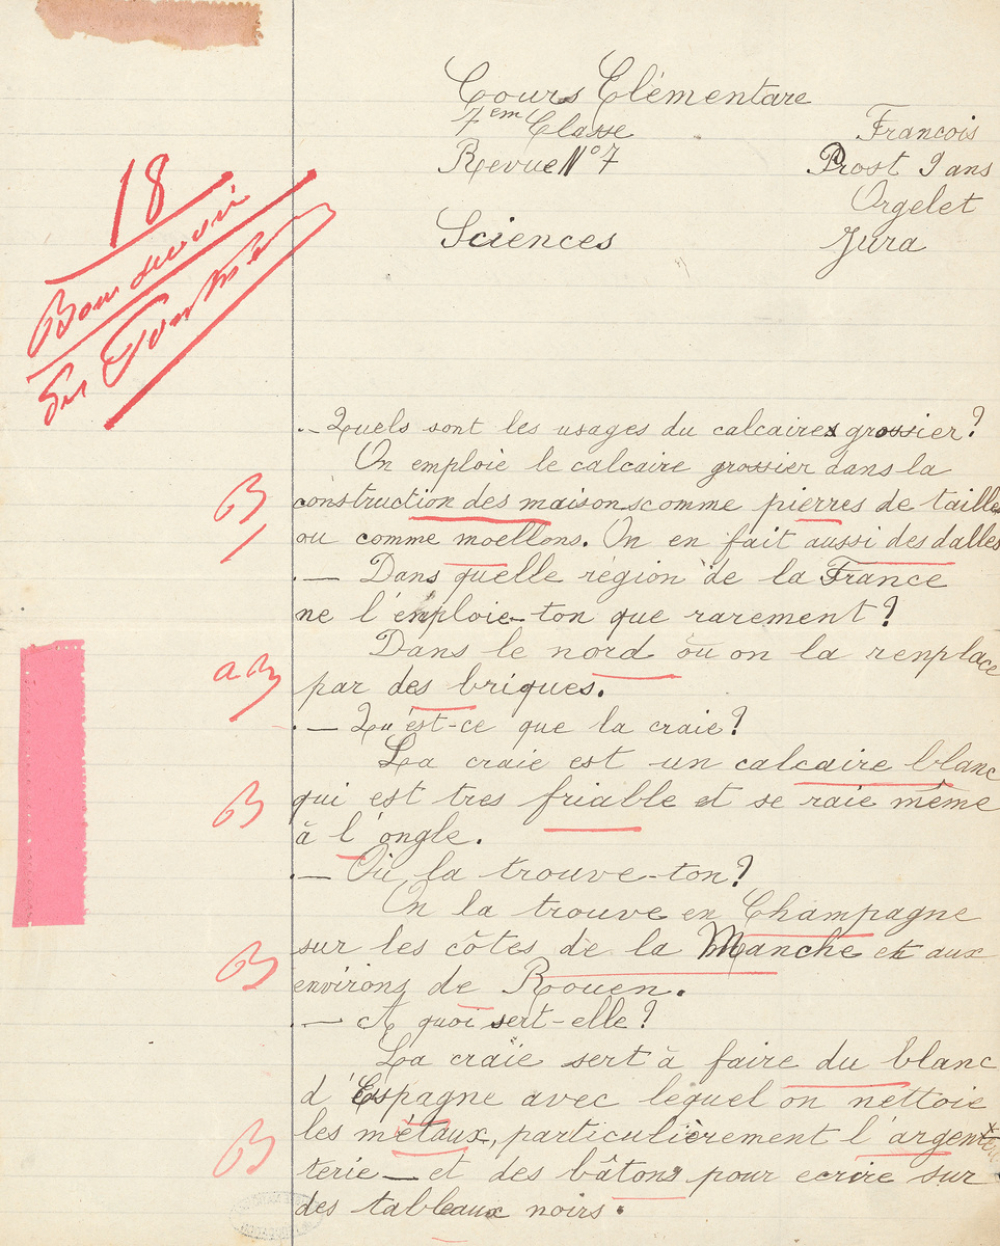 Cours Elémentare
7em Classe
Francois
Revue N° 7
Prost 9 ans
Orgelet
Sciences
Jura
18
Bon devoir
.– Quels sont les usages du calcaire grossier?
On emploie le calcaire grossier dans la
construction des maisons comme pierres de tailles
ou comme moellons. On en fait aussi des dalles
.– Dans quelle région de la France
ne l'emploie-ton que rarement?
Dans le nord ou on la renplace
par des briques.
.– Qu'est-ce que la craie?
La craie est un calcaire blanc
qui est tres friable et se raie même
à l'ongle.
.– Où la trouve-ton?
On la trouve en Champagne
sur les côtes de la Manche et aux
environs de Rouen.
.– A quoi sert-elle?
La craïe sert à faire du blanc
d'Espagne avec lequel on nettoie
les métaux, particulièrement l'argen
terie – et des bâtons pour ecrire sur
des tableaux noirs.
B
aB
B
B
B